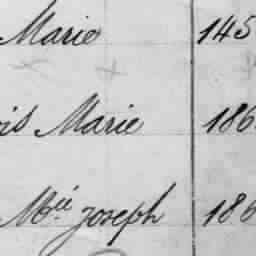 Marie 145
ois Marie 186
Mie joseph 186